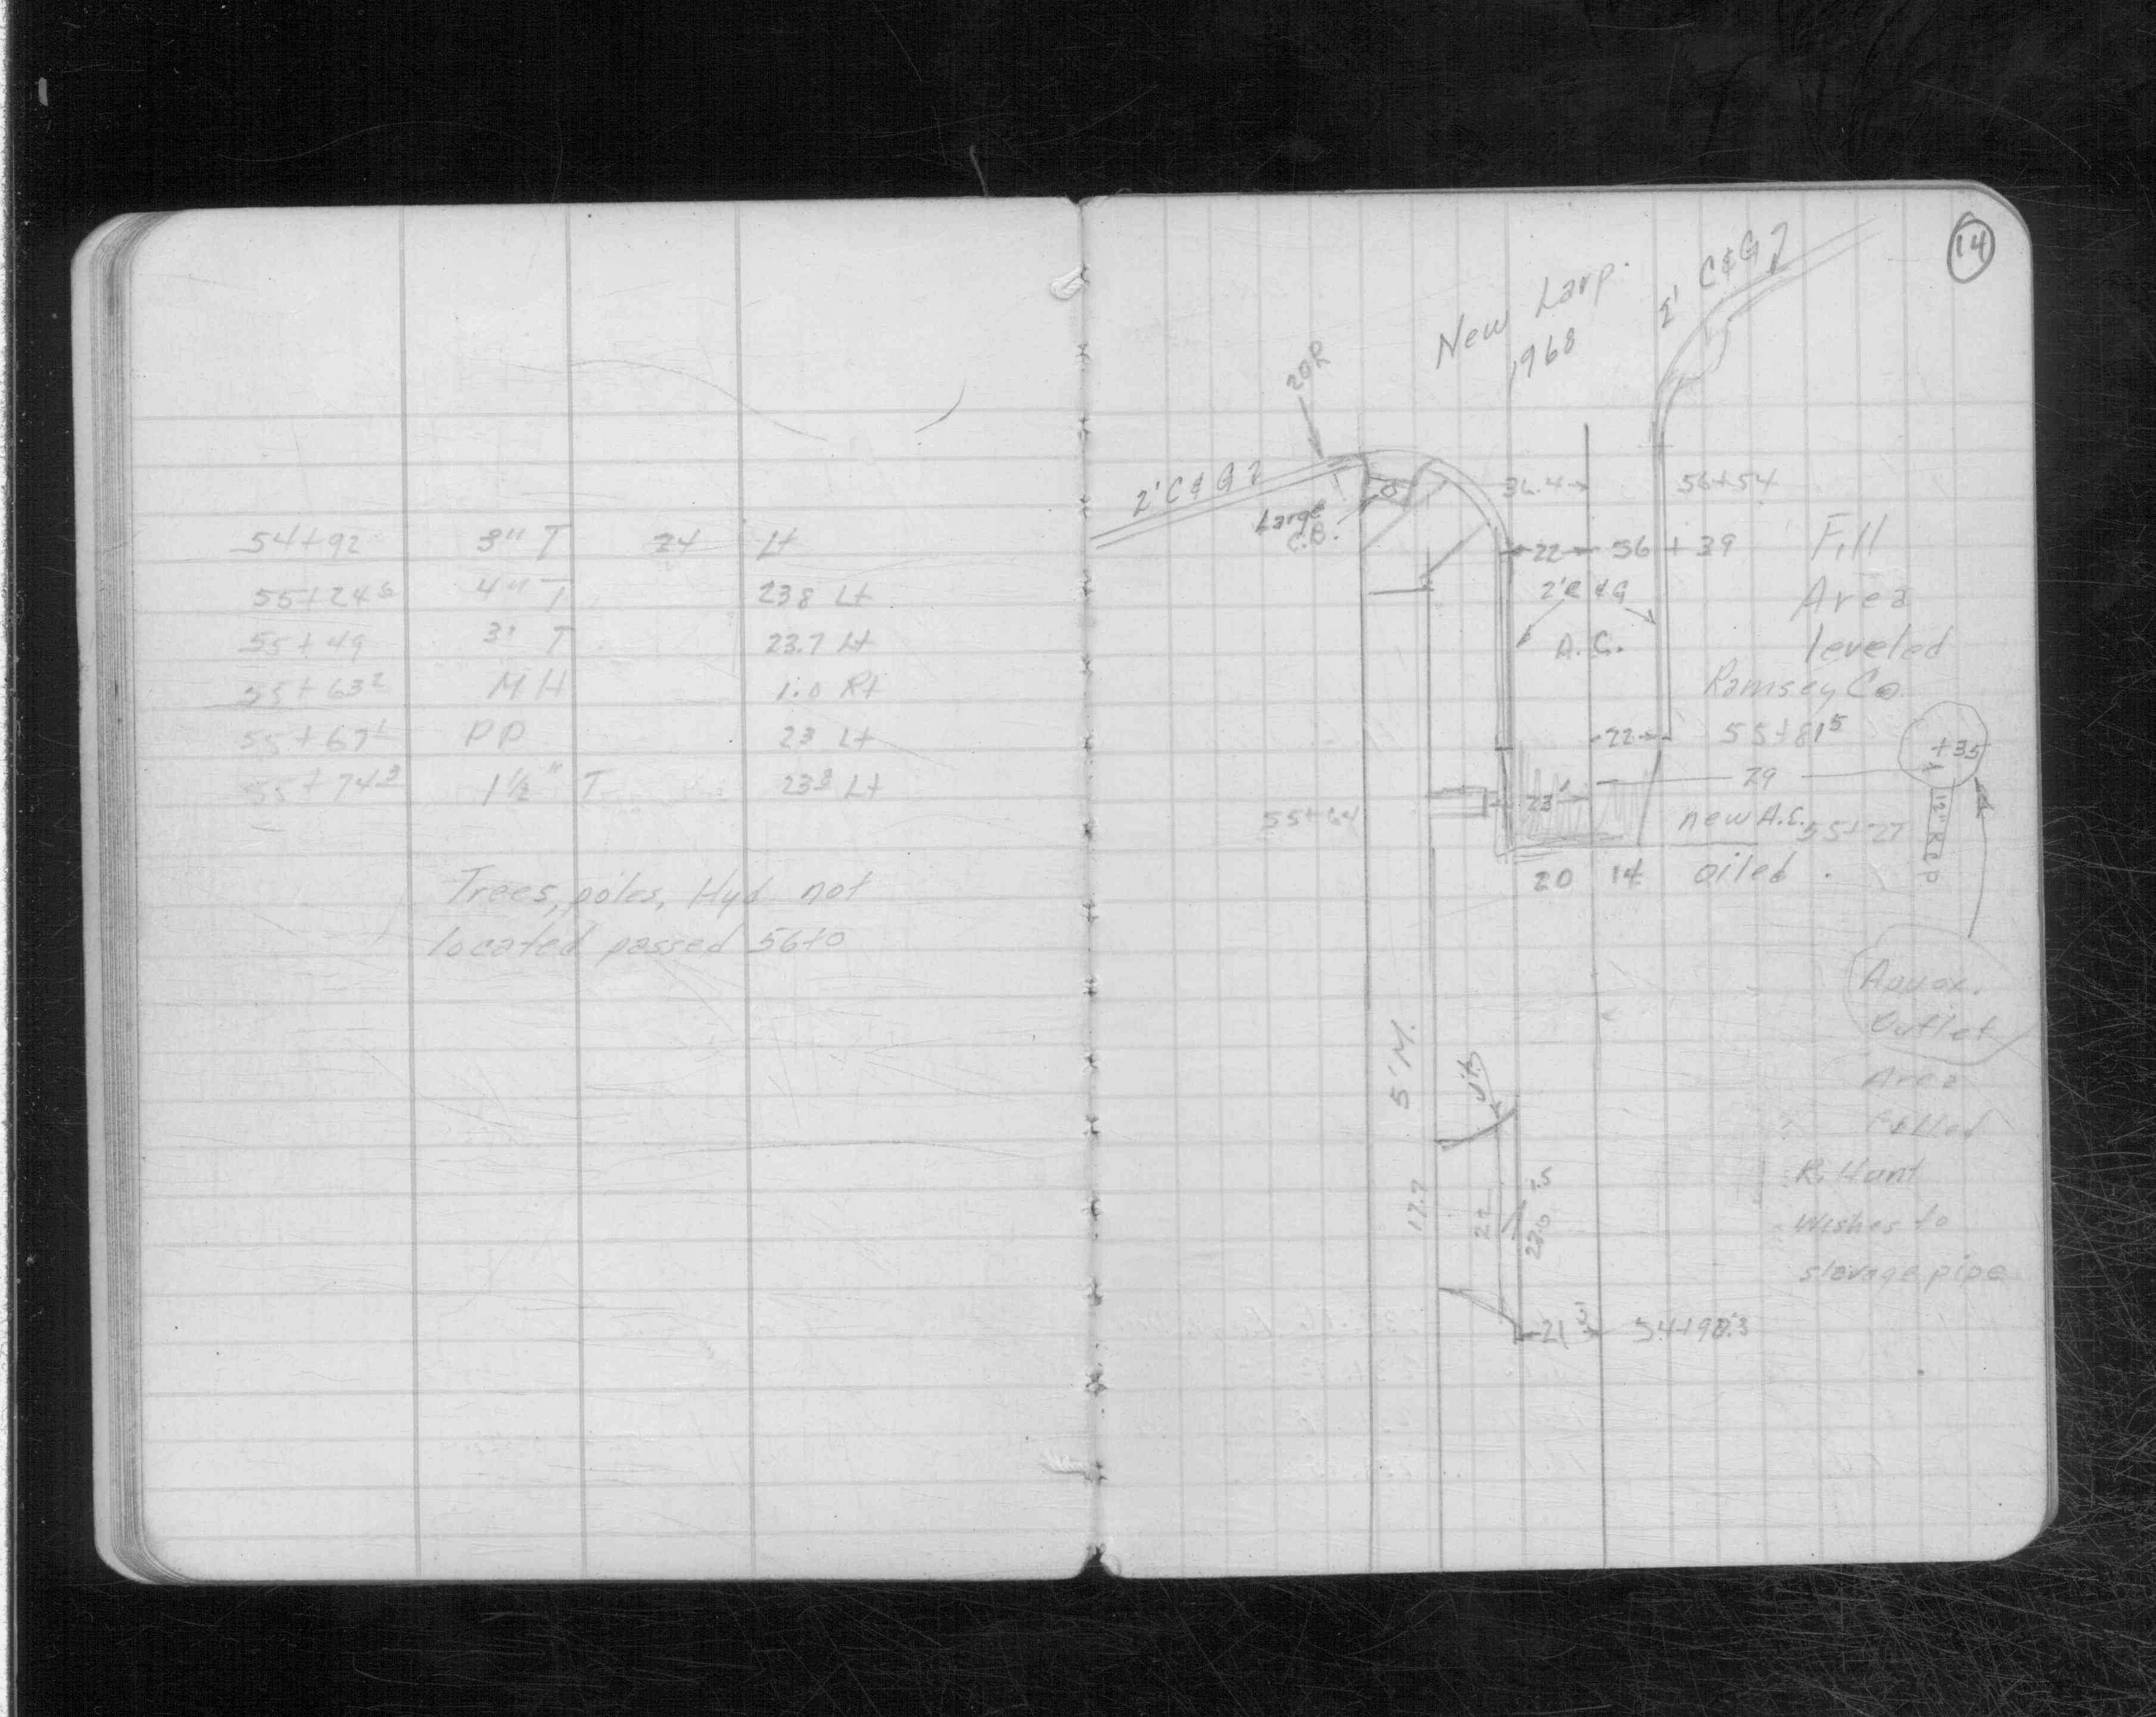 54+92 3" T 24 Lt
55+24⁶ 4" T 238 Lt
55+49 3" T 23.7 Lt
55+63² MH 1.0 Rt
55+67¹ PP 23 Lt
55+74³ 1½" T 23⁸ Lt
Trees, poles, Hyd not
located passed 56+0
14
New Larp.
1968
2' C&G
20R
2' C&G
Large
C.B.
36.4 56+54
22 56+39
2' C&G
A.C.
Fill
Area
leveled
Ramsey Co.
22 55+81⁵
+35
79
23'
55+64
new A.C. 55+27
12" RCP
20 14 oiled
Outlet
Area
R. Hunt
Wishes to
slavage pipe
5' M.
Bit
17.7
22
23.0
7.5
21 54+98.3